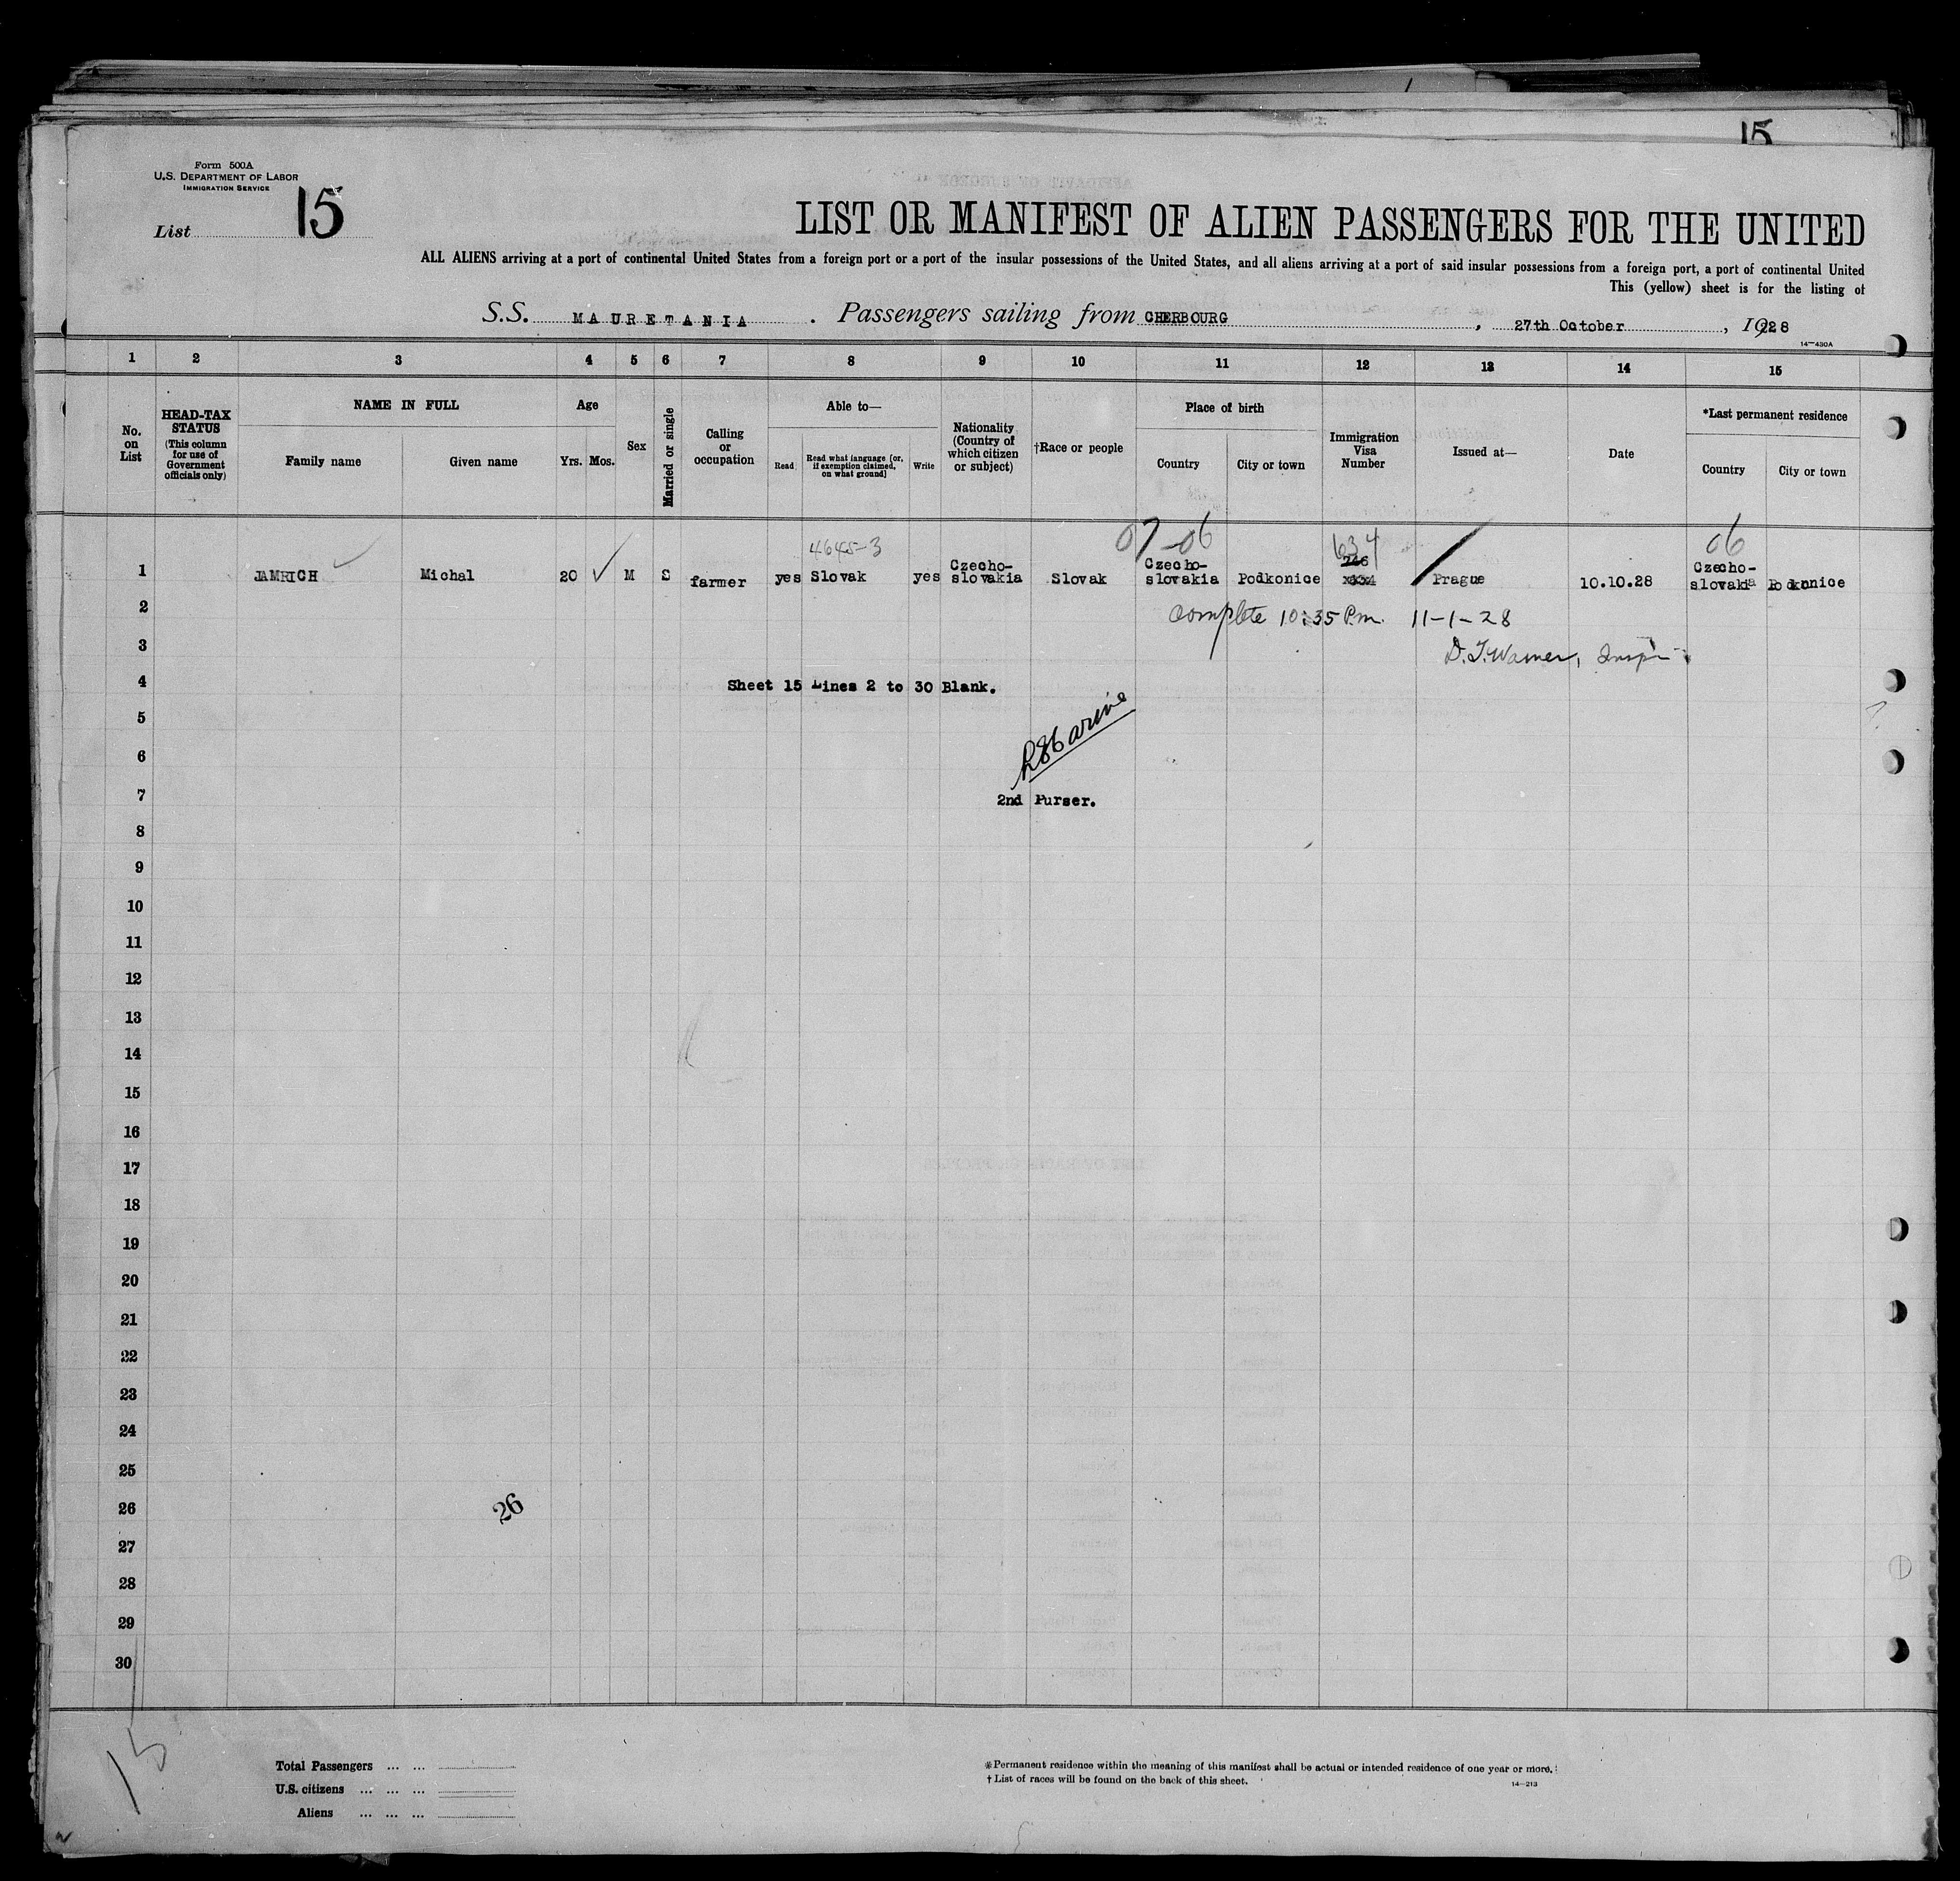 15
Form 500A
U.S. DEPARTMENT OF LABOR
IMMIGRATION SERVICE
List 15
LIST OR MANIFEST OF ALIEN PASSENGERS FOR THE UNITED
ALL ALIENS arriving at a port of continental United States from a foreign port or a port of the insular possessions of the United States, and all aliens arriving at a port of said insular possessions from a foreign port, a port of continental United
This (yellow) sheet is for the listing of
S.S. MAURETANIA . Passengers sailing from CHERBOURG , 27th October , 1928
14—430A
1 2 3 4 5 6 7 8 9 10 11 12 13 14 15
No. on List
HEAD-TAX STATUS (This column for use of Government officials only)
NAME IN FULL
Family name Given name
Age
Yrs. Mos.
Sex
Married or single
Calling or occupation
Able to—
Read Read what language [or, if exemption claimed, on what ground] Write
Nationality (Country of which citizen or subject)
†Race or people
Place of birth
Country City or town
Immigration Visa Number
Issued at—
Date
*Last permanent residence
Country City or town
4645-3 07-06 634 06
1 JAMRICH Michal 20 M S farmer yes Slovak yes Czecho-slovakia Slovak Czecho-slovakia Podkonice 266 Prague 10.10.28 Czecho-slovakia Podkonice
2 complete 10:35 P.m. 11-1-28
3 D.T. Warner, Inspr
4 Sheet 15 Lines 2 to 30 Blank.
5
6
7 2nd Purser.
8
9
10
11
12
13
14
15
16
17
18
19
20
21
22
23
24
25
26 26
27
28
29
30
15
Total Passengers ... ...
U.S. citizens ... ... ...
Aliens ... ... ...
*Permanent residence within the meaning of this manifest shall be actual or intended residence of one year or more.
†List of races will be found on the back of this sheet.
14—213